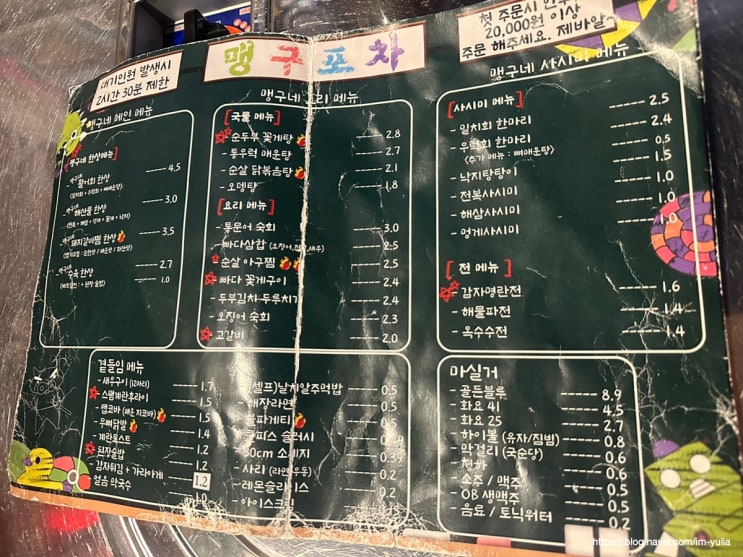 대기인원 발생시
2시간 30분 제한
맹구포차
첫 주문시
20,000원 이상
주문 해주세요. 제바알~
맹구네 메인 메뉴
[맹구네 한상메뉴]
맹구네 활어회 한상 4.5
맹구네 해산물 한상 3.0
맹구네 돼지갈비찜 한상 3.5
맹구네 수육 한상 2.7
1.0
맹구네 요리 메뉴
[국물 메뉴]
- 순두부 꽃게탕 2.8
- 통우럭 매운탕 2.7
- 순살 닭볶음탕 2.1
- 오뎅탕 1.8
[요리 메뉴]
- 통문어 숙회 3.0
- 빠다삼합 2.5
- 순살 아구찜 2.5
- 빠다 꽃게구이 2.4
- 두부김치 두루치기 2.4
- 오징어 숙회 2.3
- 고갈비 2.0
맹구네 사시미 메뉴
[사시미 메뉴]
- 일치회 한마리 2.5
- 우럭회 한마리 2.4
<추가 메뉴 : 뼈매운탕> 0.5
- 낙지탕탕이 1.5
- 전복사시미 1.0
- 해삼사시미 1.0
- 멍게사시미 1.0
[전 메뉴]
- 감자명란전 1.6
- 해물파전 1.4
- 옥수수전 1.4
곁들임 메뉴
- 새우구이 (12마리) 1.7
- 스팸계란후라이 1.5
- 무뼈닭발 1.5
- 계란토스트 1.4
- 된장술밥 1.2
- 감자튀김 + 가라아게 1.2
- 얼음 막국수 1.0
(셀프)날치알주먹밥 0.5
- 해장라면 0.5
30cm 소세지
- 사리 (라면, 우동) 0.2
- 레몬슬라이스 0.2
- 아이스크림
마실거
- 골든블루 8.9
- 화요 41 4.5
- 화요 25 2.7
- 하이볼 (유자/짐빔) 0.8
- 막걸리 (국순당) 0.6
- 청하 0.6
- 소주 / 맥주 0.5
- OB 생맥주 0.5
- 음료 / 토닉워터 0.2
https://blog.naver.com/im-yulia